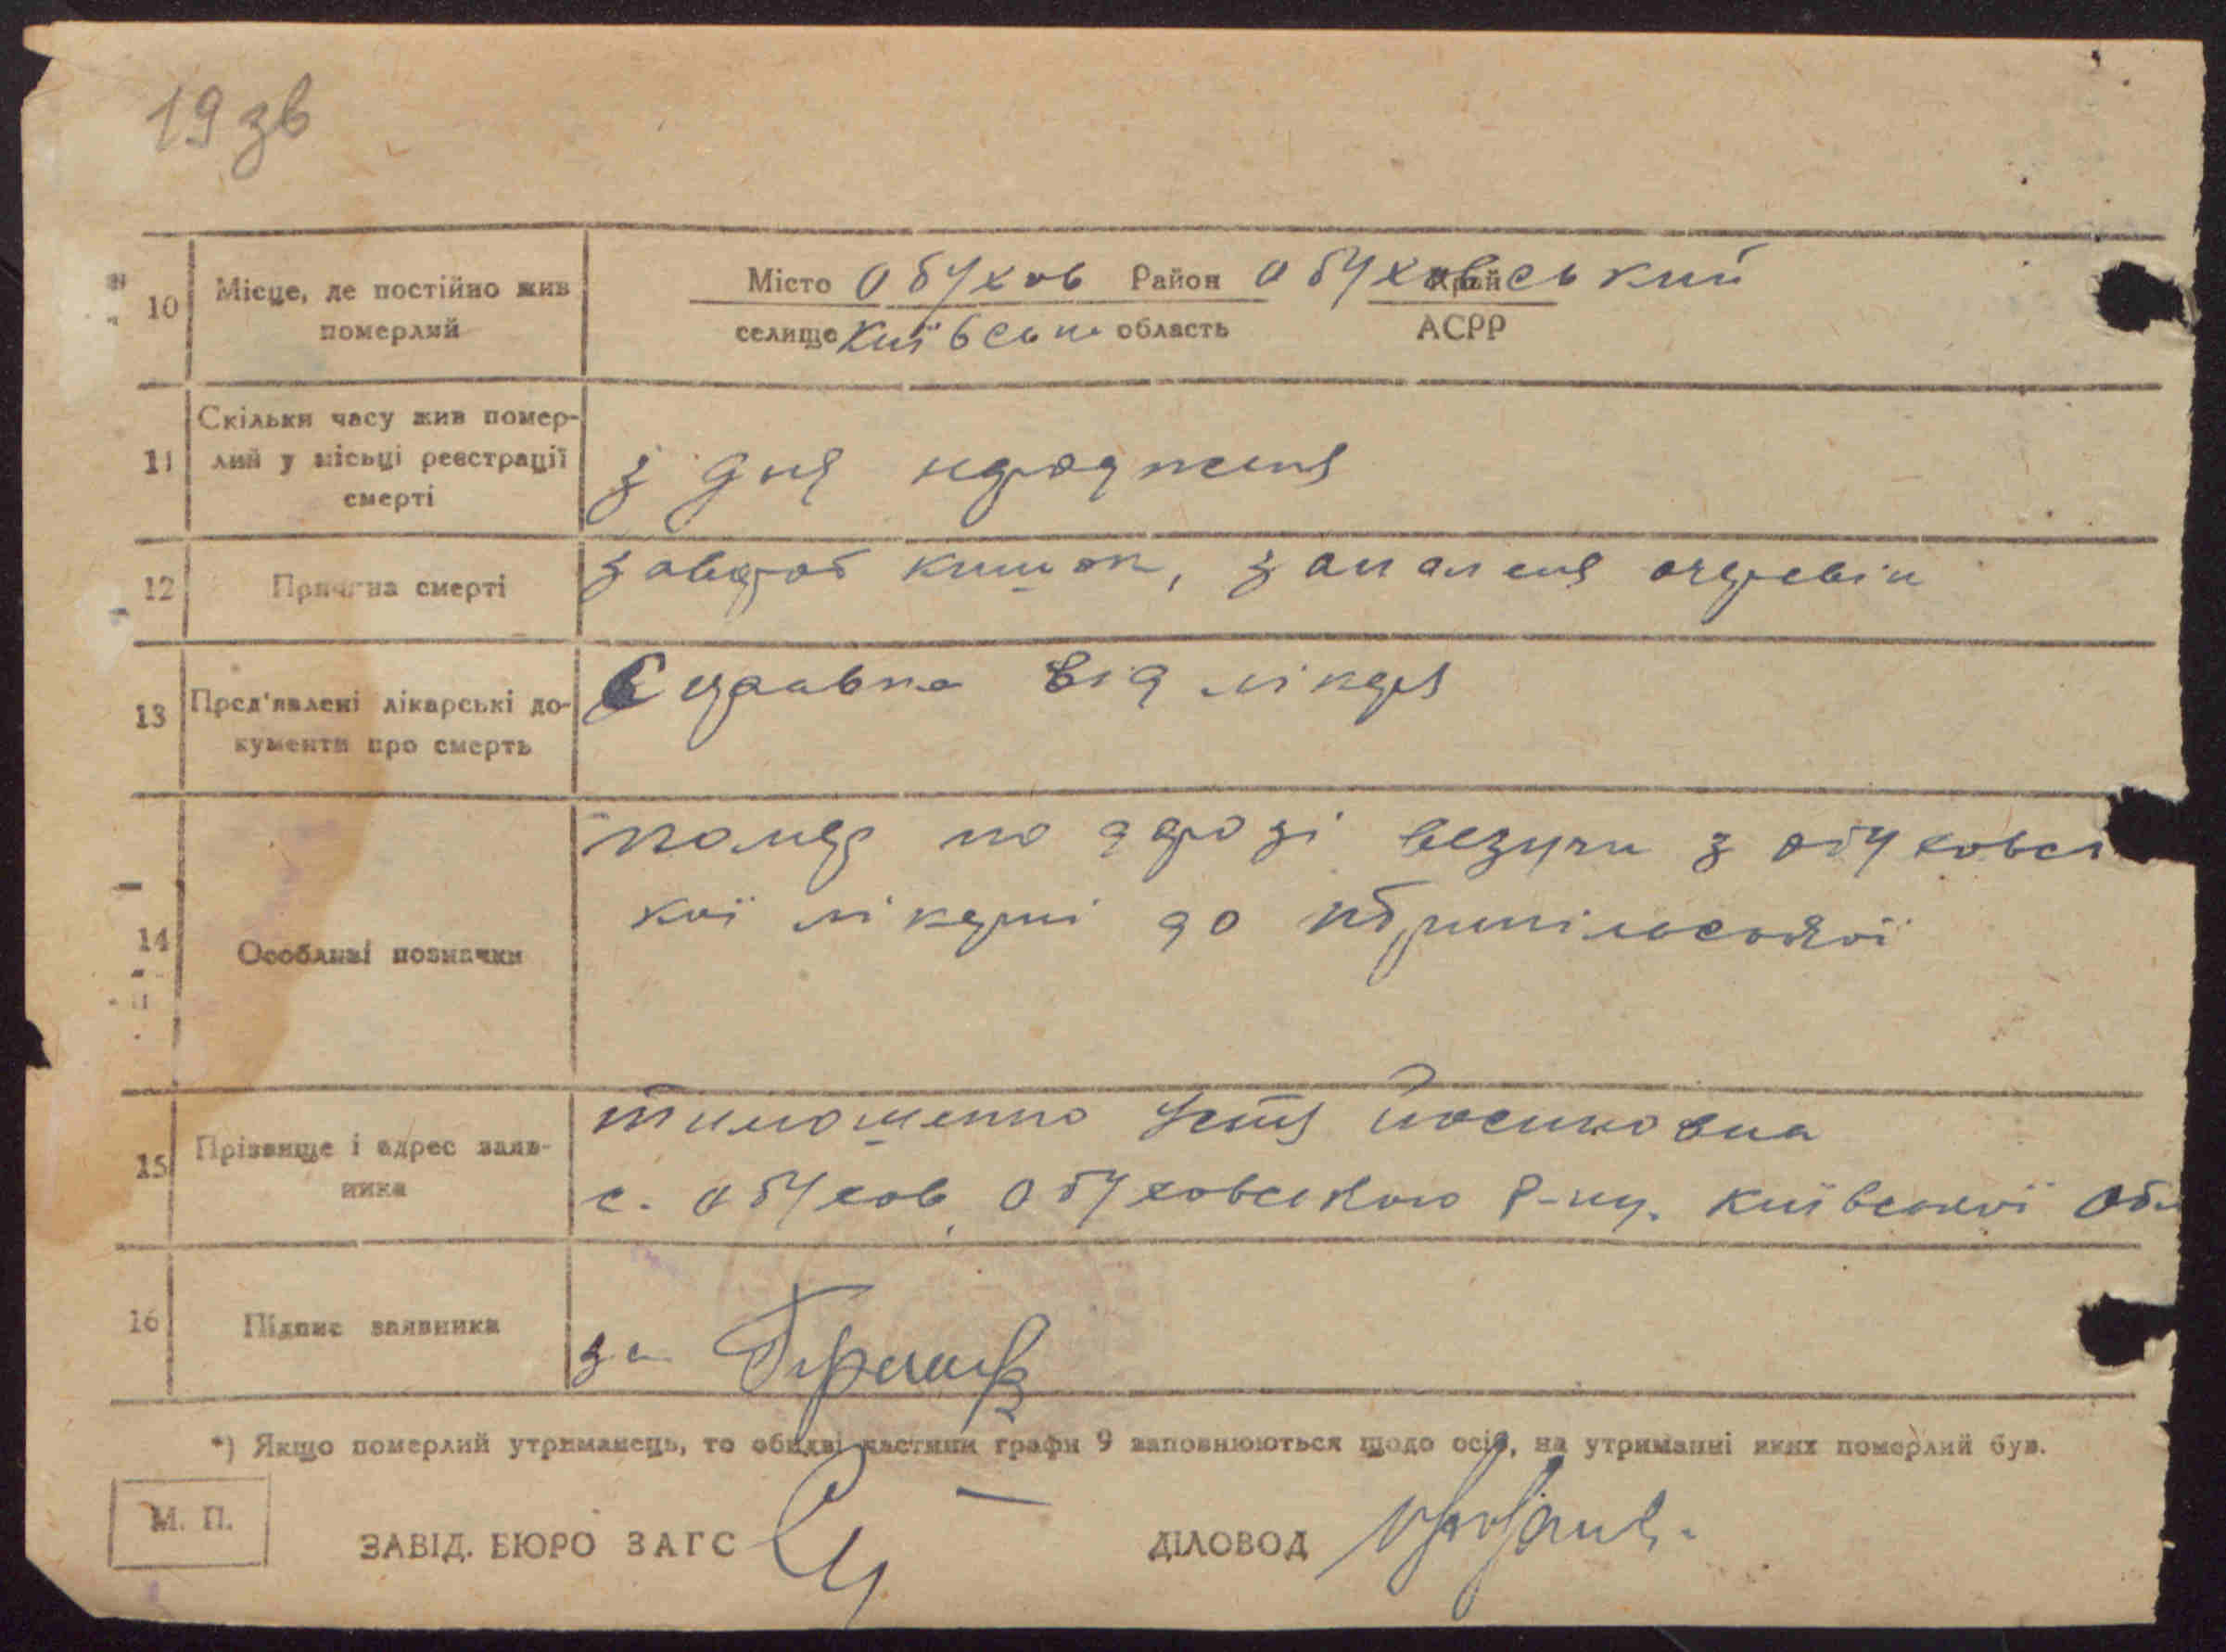 19 зв
10 Місце, де постійно жив померлий
Місто Обухов Район Обуховський Край
селище Київська область АСРР
11 Скільки часу жив помер-
лий у місьці реєстрації
смерті
з дня народженя
12 Причина смерті
заворот кишок, запаленя очеревін
13 Пред'явлені лікарські до-
кументи про смерть
Справка від лікаря
14 Особливі позначки
помер по дорозі везучи з обуховсь
кої лікарні до
15 Прізвище і адрес заяв-
ника
Тимошенко Устя Йосиповна
с. Обухов, Обуховського р-ну. Київської обл
16 Підпис заявника
за
*) Якщо померлий утриманець, то обидві частини графи 9 заповнюються щодо осіб, на утриманні яких померлий був.
М. П.
ЗАВІД. БЮРО ЗАГС ДІЛОВОД